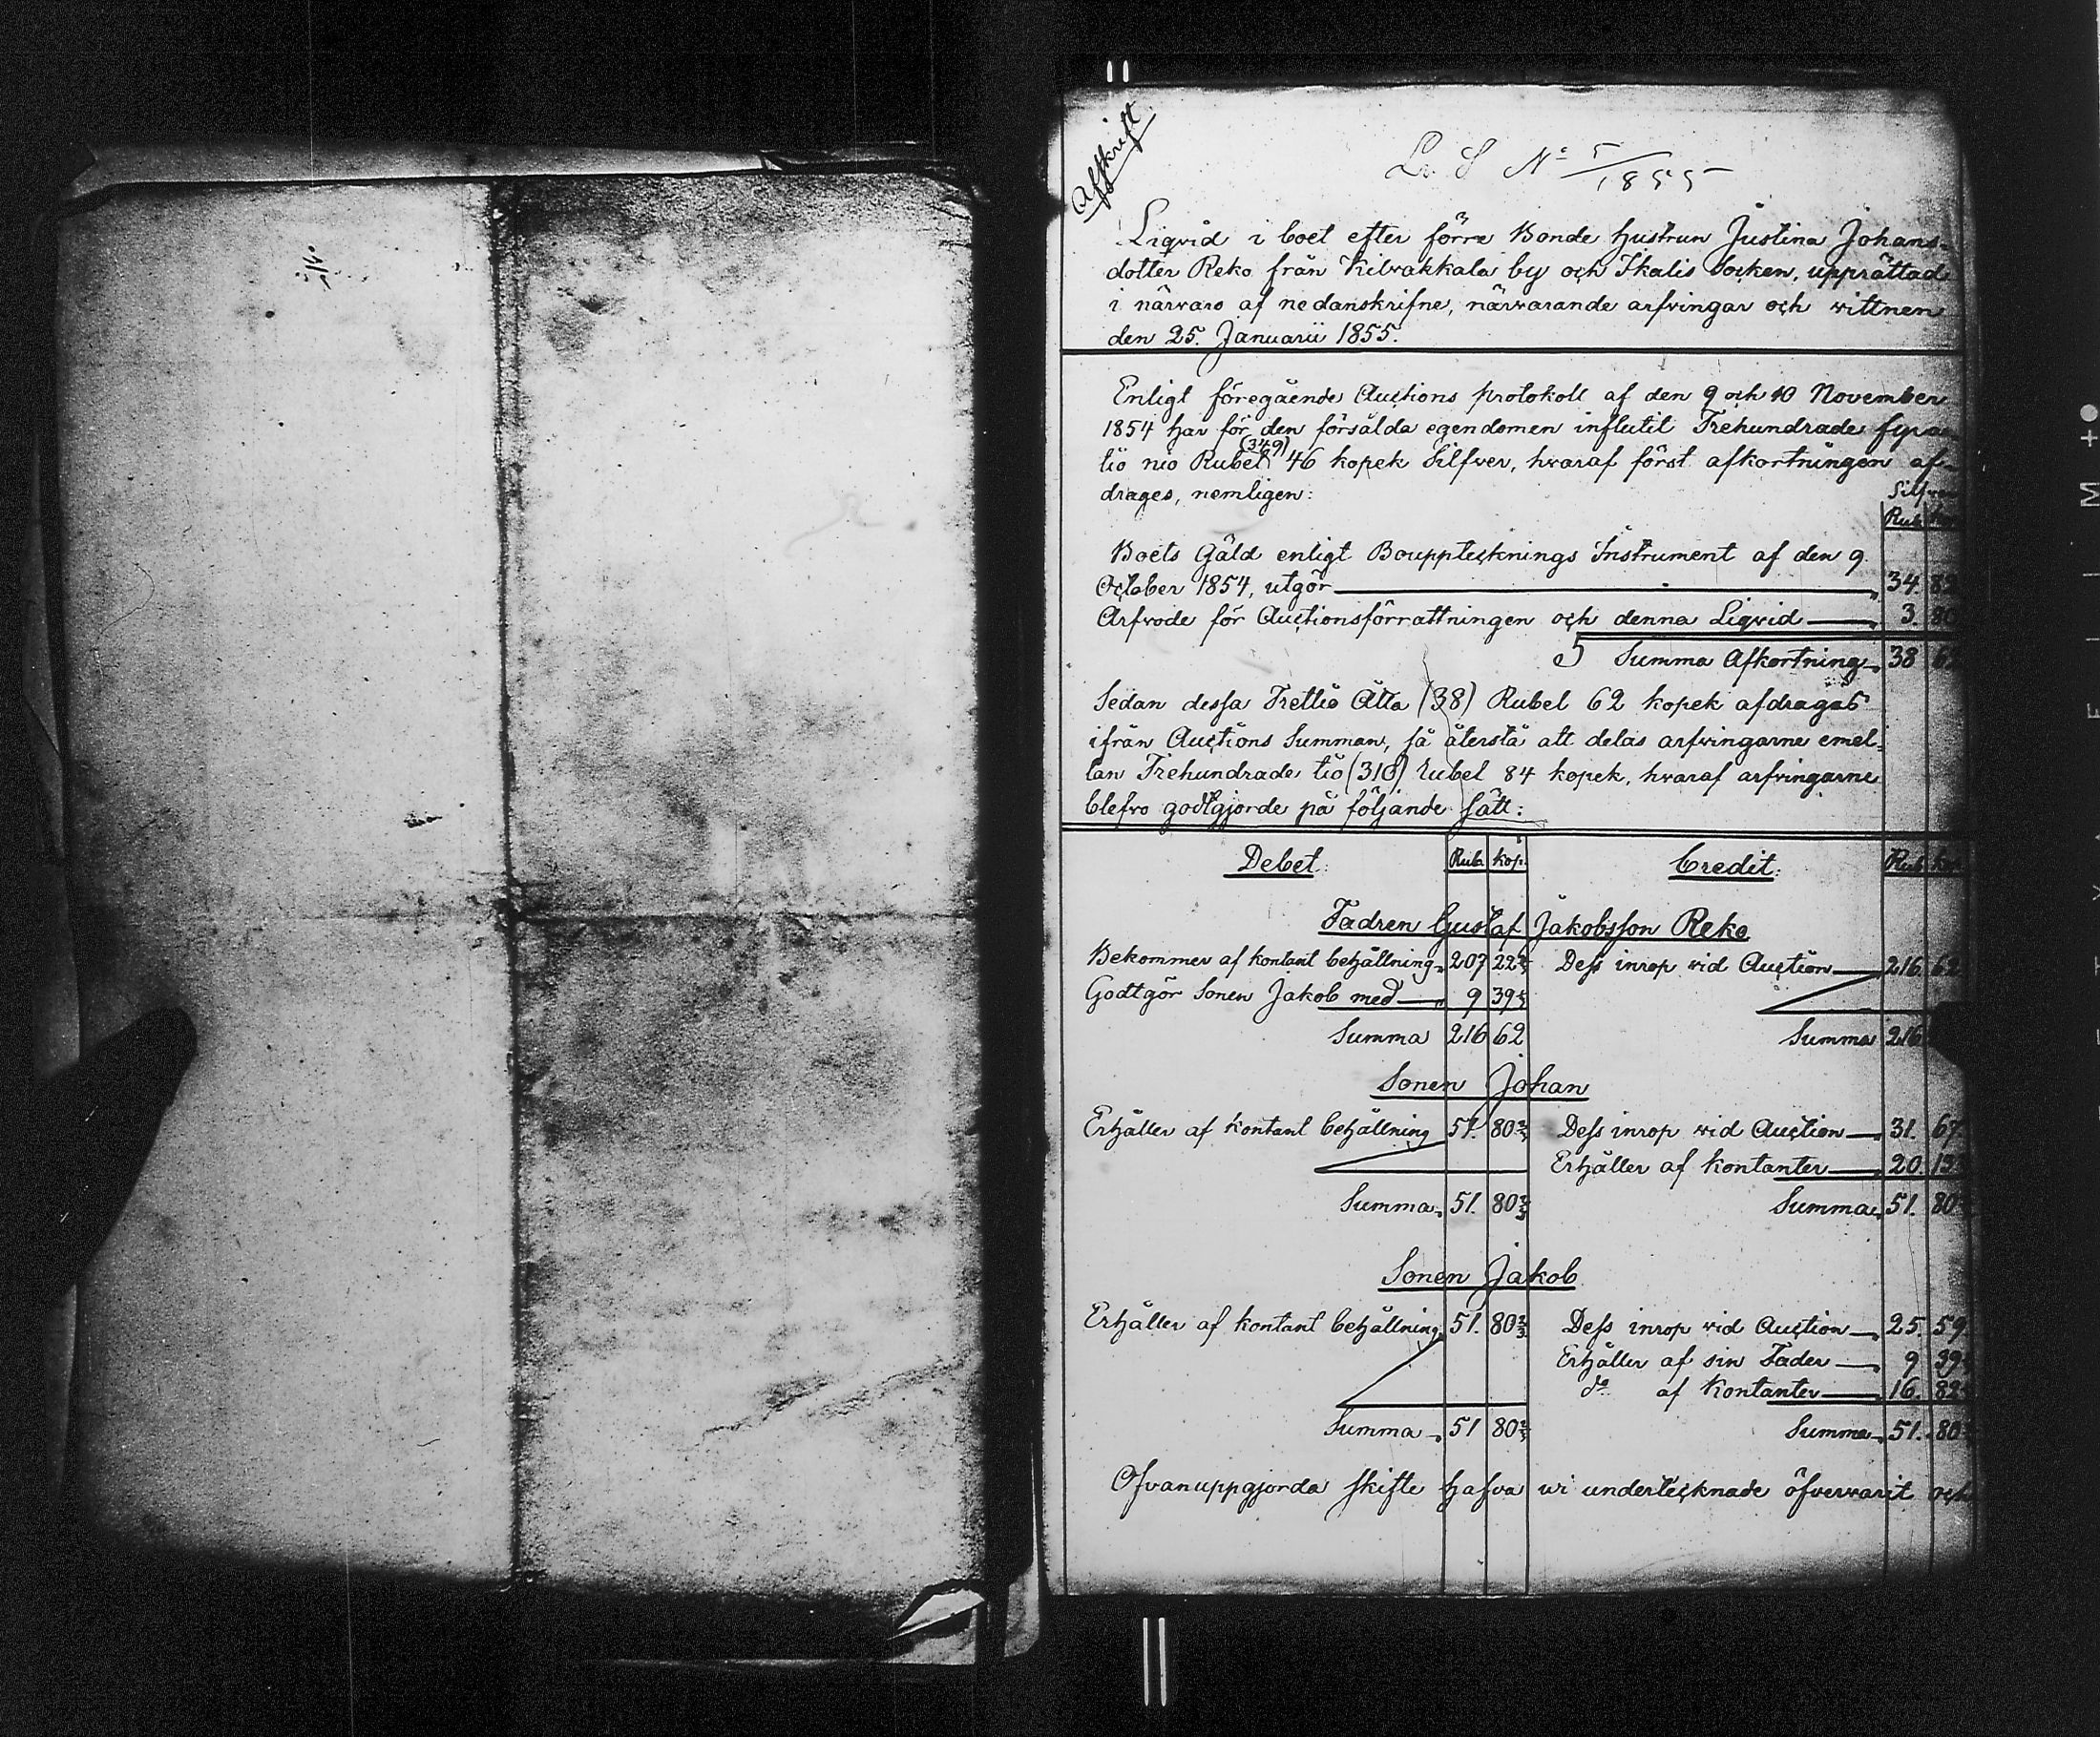 Affskrift
L. S N:o 5/1855
Liqvid i boet efter förre Bonde hustrun Justina Johans-
dotter Reko från Kilvakkala by och Ikalis Socken, upprättad
i närvaro af nedanskrifne, närvarande arfvingar och vittnen
den 25. Januarii 1855.
Enligt föregående Auctions protokoll af den 9 och 10 November
1854 har för den försålda egendomen influtit Trehundrade fyra
tio nio Rubel (349) 46 kopek Silfver, hvaraf först afkortningen af-
drages, nemligen:
Silfver
Rub. kop.
Boets Gäld enligt Bouppteknings Instrument af den 9.
October 1854, utgör 34. 82
Arfvode för Auctionsförrättningen och denna Liqvid 3. 80
Summa Afkortning 38 62
Sedan dessa Trettio Åtta (38) Rubel 62 kopek afdragas
ifrån Auctions Summan, så återstå att delas arfvingarne emel-
lan Trehundrade tio (310) rubel 84 kopek, hvaraf arfvingarne
blefvo godtgjorde på följande sätt:
Debet: Rub. kop. Credit: Rub. kop.
Fadren Gustaf Jakobsson Reko
Bekommer af kontant behållning 207 22⅔ Dess inrop vid Auction 216. 62
Godtgör Sonen Jakob med 9 39⅓
Summa 216 62 Summa 216
Sonen Johan
Erhåller af kontant behållning 51. 80⅔ Dess inrop vid Auction 31. 67
Erhåller af kontanter 20. 13⅔
Summa 51. 80⅔ Summa 51. 80⅔
Sonen Jakob
Erhåller af kontant behållning 51. 80⅔ Dess inrop vid Auction 25. 59
Erhåller af sin Fader 9 39⅓
d:o af Kontanter 16. 82⅓
Summa 51 80⅔ Summa 51. 80⅔
Ofvanuppgjorda skifte hafva vi undertecknade öfvervarit och